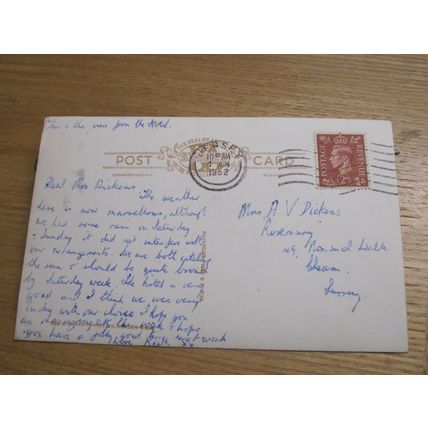 This is the view from the Hotel.
POST CARD
CORRESPONDENCE
JERSEY
10 15 AM
1952
POSTAGE
REVENUE
2D
Dear Mrs Dickens
The weather
here is now marvellous, although
we had some rain on Saturday
& Sunday it did not interfere with
our arrangements. We are both getting
the sun & should be quite brown
by Saturday week. The hotel is very
good and I think we were very
lucky with our choice. I hope you
are managing the work & hope
you have a jolly good time next week
Love
Mrs. A V Dickens
Rosemary
49, Nonsuch Walk
Cheam.
Surrey.